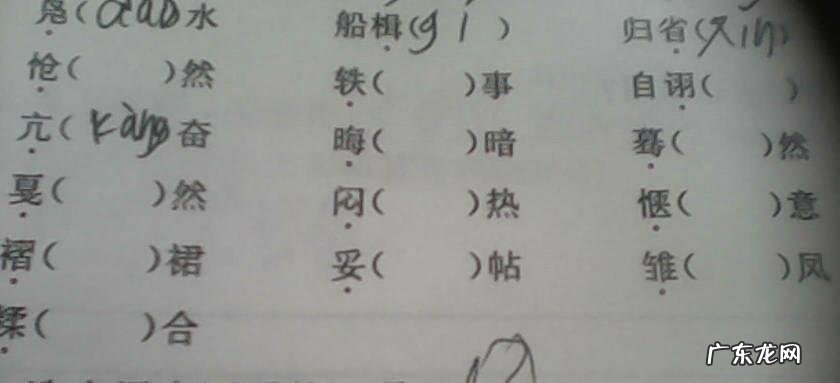 凫(dao水 船楫(gi ) 归省(xin)
怆( )然 轶( )事 自诩( )
亢(kàng奋 晦( )暗 蓦( )然
戛( )然 闷( )热 惬( )意
褶( )裙 妥( )帖 雏( )凤
糅( )合
广东龙网